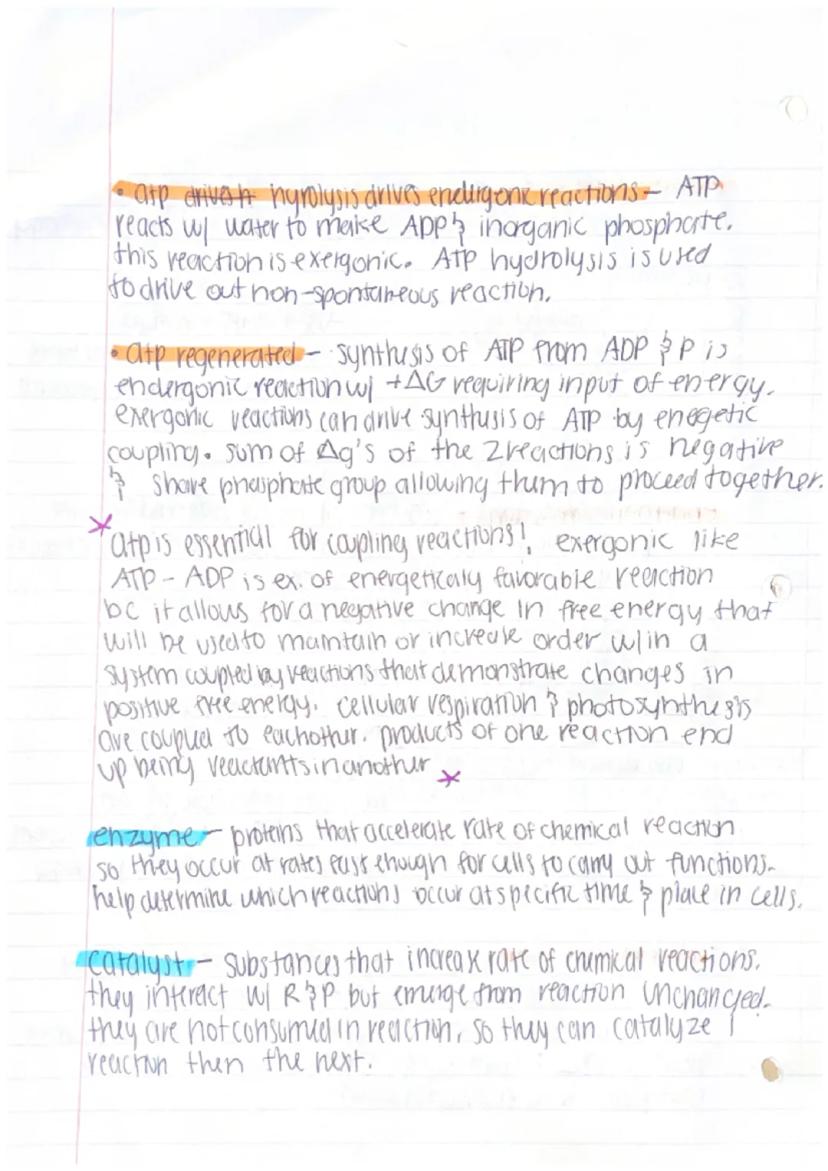 • atp drives h hyrolysis drives endergonic reactions - ATP
reacts w/ water to make ADP & inorganic phosphate.
this reaction is exergonic. ATP hydrolysis is used
to drive out non-spontaneous reaction.
• atp regenerated - synthesis of ATP from ADP & P is
endergonic reaction w/ +ΔG requiring input of energy.
exergonic reactions can drive synthesis of ATP by enegetic
coupling. sum of Δg's of the 2 reactions is negative
& share phosphate group allowing them to proceed together.
* atp is essential for coupling reactions!, exergonic like
ATP - ADP is ex. of energeticaly favorable reaction
bc it allows for a negative change in free energy that
will be used to maintain or increase order w/in a
system coupled by reactions that demonstrate changes in
positive free energy. cellular respiration & photosynthesis
are coupled to eachother. products of one reaction end
up being reactants in another *
enzyme - proteins that accelerate rate of chemical reaction
so they occur at rates fast enough for cells to carry out functions.
help determine which reactions occur at specific time & place in cells.
catalyst - substances that increase rate of chemical reactions.
they interact w/ R & P but emerge from reaction unchanged.
they are not consumed in reaction, so they can catalyze 1
reaction then the next.